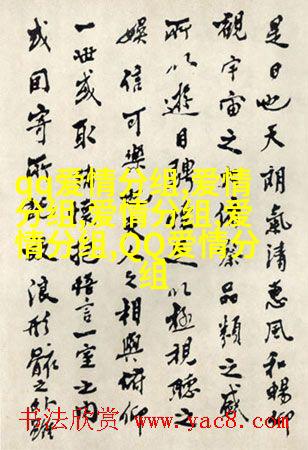 是日也天朗氣清惠風和暢仰
觀宇宙之察品類之盛
所以遊目騁以極視聽之
娛信可樂之相與俯仰
一世或取懷抱悟言一室之內
或因寄所浪形骸之外雖
qq爱情分组,爱情
分组,爱情分组,爱
情分组,QQ爱情分
组
书法欣赏 www.yac8.com